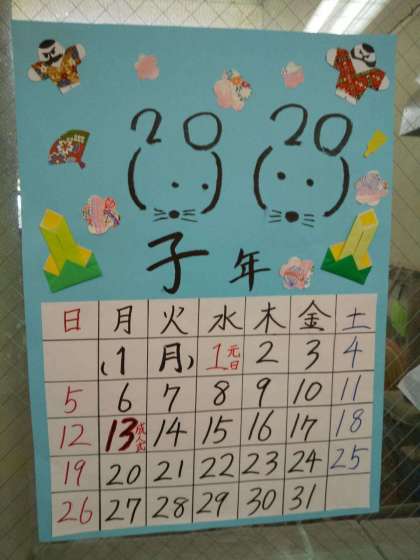 2020 2020
子年
日 月 火 水 木 金 土
(1月) 1 元日 2 3 4
5 6 7 8 9 10 11
12 13 成人式 14 15 16 17 18
19 20 21 22 23 24 25
26 27 28 29 30 31